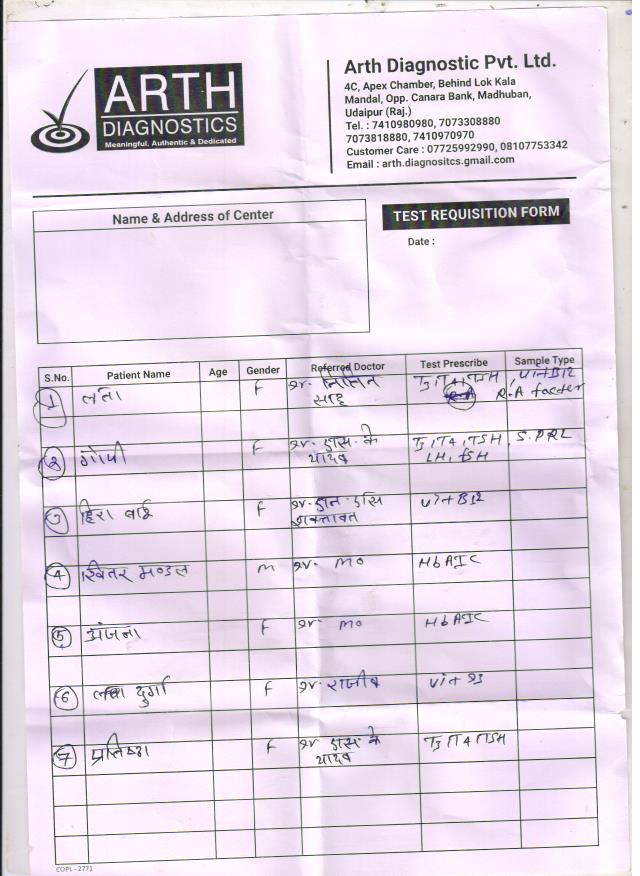 ARTH
DIAGNOSTICS
Meaningful, Authentic & Dedicated
Arth Diagnostic Pvt. Ltd.
4C, Apex Chamber, Behind Lok Kala
Mandal, Opp. Canara Bank, Madhuban,
Udaipur (Raj.)
Tel. : 7410980980, 7073308880
7073818880, 7410970970
Customer Care : 07725992990, 08107753342
Email : arth.diagnositcs.gmail.com
Name & Address of Center
TEST REQUISITION FORM
Date :
S.No. Patient Name Age Gender Referred Doctor Test Prescribe Sample Type
1 लता F डॉ. नितिन T3, T4, TSH, Vit B12
साहू R.A factor
2 गोपी F डॉ. डास. के T3, T4, TSH, S. PRL
यादव LH, FSH
3 हिरा बाई F Vit B12
शक्तावत
4 मण्डल M डॉ. MO HbA1C
5 अंजना F डॉ. MO HbA1C
6 दुर्गा F डॉ. राजीव
7 प्रतिष्ठा F डॉ डास. के T3 T4 TSH
यादव
COPL - 2771